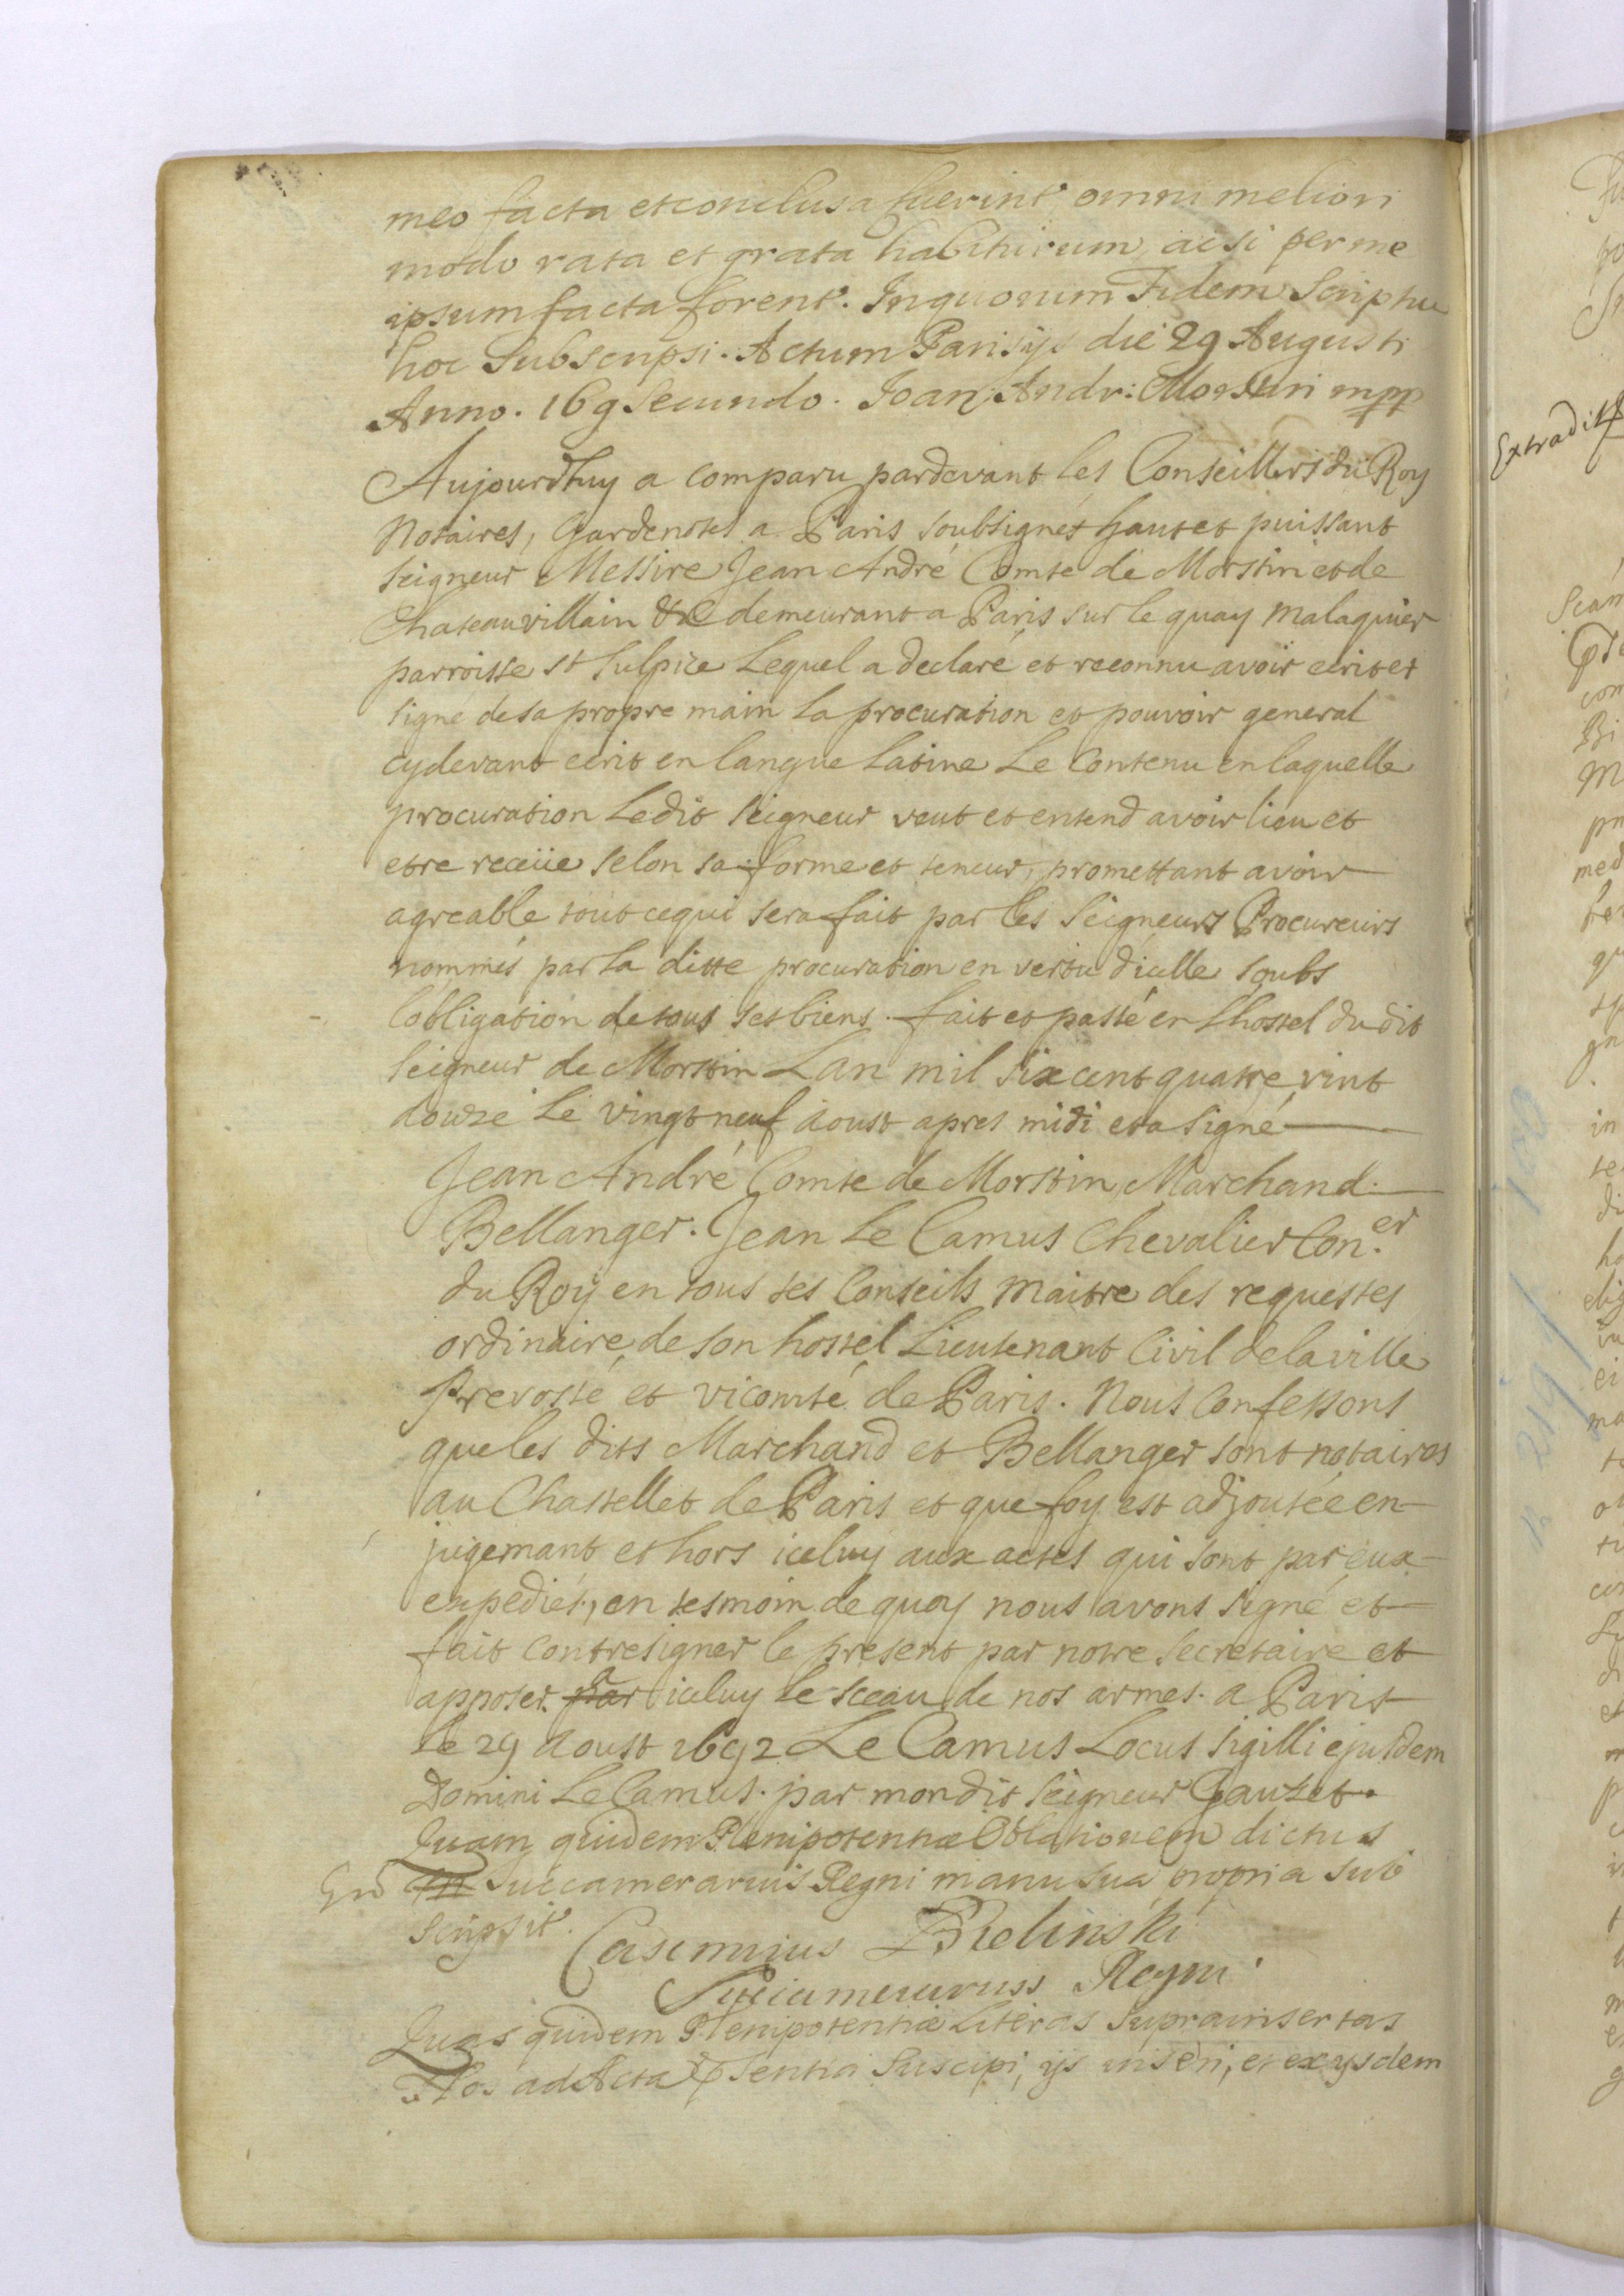 meo facta et conclusa fuerint omni meliori
modo rata et grata habiturum, ac si per me
ipsum facta forent. In quorum Fidem Scriptu
hoc Subscripsi. Actum Parisijs die 29 Augusti
Anno. 169 Secundo. Joan: Andr: Morstin mpp
Aujourdhuy a comparu pardevant les Conseillers du Roy
Notaires, Gardenotes a Paris soubsignes haut et puissant
seigneur Messire Jean André Comte de Morstin et de
Chateauvillain &c demeurant a Paris sur le quay Malaquier
parroisse st Sulpice Lequel a declaré et reconnu avoir ecrit et
signe de sa propre main la procuration et pouvoir general
cydevant ecrit en langue Latine Le Contenu en laquelle
procuration Ledit seigneur veut et entend avoir lieu et
etre receüe selon sa forme et teneur, promettant avoir
agreable tout cequi sera fait par les Seigneurs Procureurs
nommés par la ditte procuration en vertu d'icelle soubs
l'obligation de tous ses biens. fait et passé en Lhostel du dit
seigneur de Morstin Lan mil six cent quatre vint
douze le vingt neuf Aoust apres midi et a signé
Jean André Comte de Morstin, Marchand.
Bellanger. Jean Le Camus Chevalier Con.er
du Roy en tous ses Conseils Maitre des requestes
ordinaire de son hostel Lieutenant Civil de la ville
Prevosté et vicomté de Paris. Nous Confessons
que les dits Marchand et Bellanger sont notaires
au Chastellet de Paris et que foy est adjoutée en
jugemant et hors iceluy aux actes qui sont par eux
expediés, en tesmoin de quoy nous avons signé et
fait contresigner le present par notre secretaire et
apposer par iceluy le sceau de nos armes. a Paris
le 29 Aoust 1692 Le Camus Locus Sigilli ejusdem
Domini Le Camus. par mondit seigneur Gauset.
Quam quidem Plenipotentiæ Oblationem dictus
Succamerarius Regni manu sua propria sub
scripsit.
Casimirus Bielinski
Succamerarius Regni
Quas quidem Plenipotentiæ Literas Suprainsertas
Nos ad Acta psentia Suscipi, ijs inseri, et ex ijsdem
Extradit